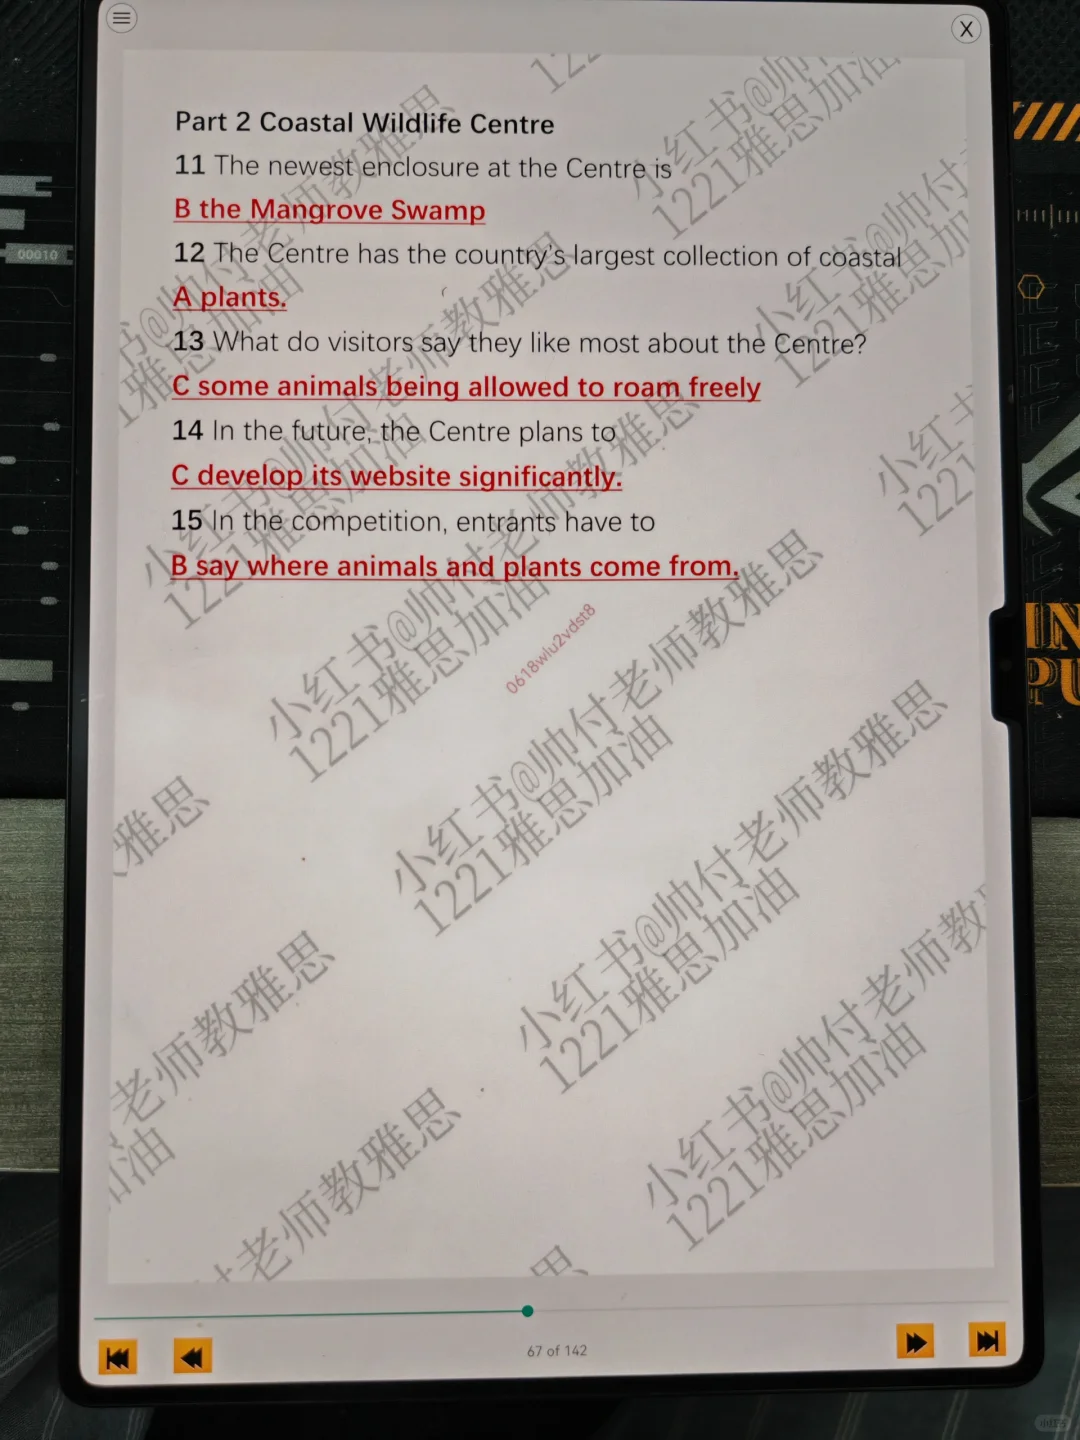 X
Part 2 Coastal Wildlife Centre
11 The newest enclosure at the Centre is
B the Mangrove Swamp
12 The Centre has the country's largest collection of coastal
A plants.
13 What do visitors say they like most about the Centre?
C some animals being allowed to roam freely
14 In the future, the Centre plans to
C develop its website significantly.
15 In the competition, entrants have to
B say where animals and plants come from.
0618wlu2vdst8
小红书@帅付老师教雅思
1221雅思加油
小红书@帅付老师教雅思
1221雅思加油
小红书@帅付老师教雅思
1221雅思加油
小红书@帅付老师教雅思
1221雅思加油
67 of 142
00010
IN
PU